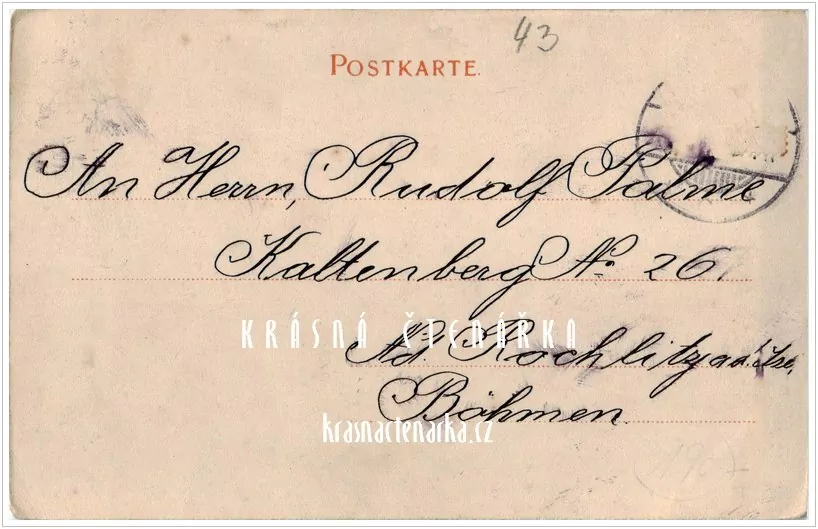 43
POSTKARTE.
An Herrn, Rudolf Palme
Kaltenberg No. 26.
KRÁSNÁ ČTENÁŘKA
Nd. Rochlitz a. d. Iser,
Böhmen.
krasnactenarka.cz